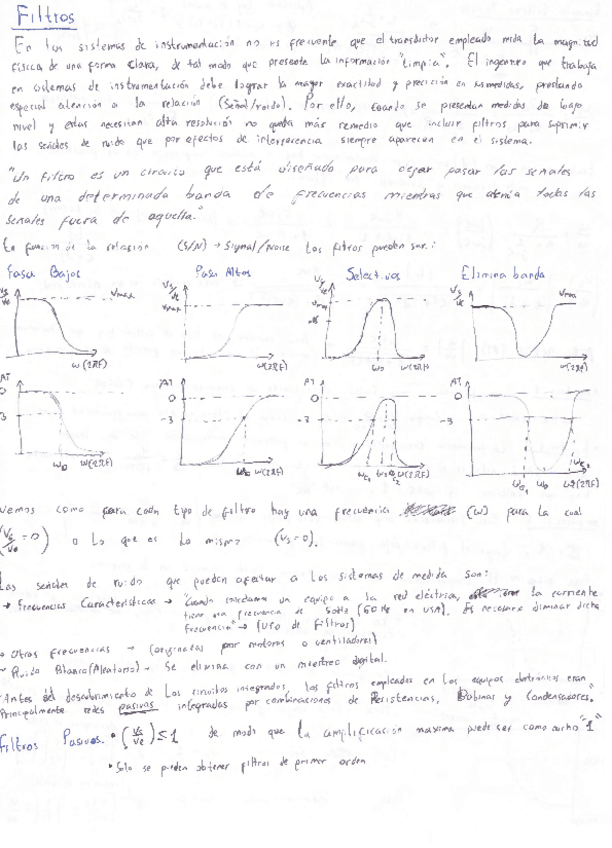 Filtros
En los sistemas de instrumentación no es frecuente que el transductor empleado mida la magnitud
física de una forma clara, de tal modo que presente la información "limpia". El ingeniero que trabaja
en sistemas de instrumentación debe lograr la mayor exactitud y precisión en sus medidas, prestando
especial atención a la relación (Señal/ruido). Por ello, cuando se presentan medidas de bajo
nivel y estas necesitan alta resolución no queda más remedio que incluir filtros para suprimir
las señales de ruido que por efectos de interferencia siempre aparecen en el sistema.
"Un filtro es un circuito que está diseñado para dejar pasar las señales
de una determinada banda de frecuencias mientras que atenúa todas las
señales fuera de aquella."
En función de la relación (S/N) → Signal/Noise los filtros pueden ser:
Pasa Bajos Pasa Altos Selectivos Elimina banda
Vs/Ve Vmax Vs/Ve Vmax Vs/Ve Vmax Vs/Ve Vmax
ω(2πF) ω(2πF) ω0 ω(2πF) ω(2πF)
AT 0 -3 AT 0 -3 AT 0 -3 AT 0 -3
ω0 ω(2πF) ω0 ω(2πF) ωc1 ω0 ωc2 ω(2πF) ωc1 ω0 ωc2 ω(2πF)
Vemos como para cada tipo de filtro hay una frecuencia (ω) para la cual
(Vs/Ve = 0) o lo que es lo mismo (Vs=0).
Las señales de ruido que pueden afectar a los sistemas de medida son:
→ Frecuencias Características → "Cuando conectamos un equipo a la red eléctrica, la corriente
tiene una frecuencia de 50Hz (60 Hz en USA). Es necesario eliminar dicha
frecuencia" → (Uso de Filtros)
→ Otras frecuencias → (originadas por motores o ventiladores)
→ Ruido Blanco (Aleatorio) → Se elimina con un muestreo digital.
"Antes del descubrimiento de los circuitos integrados, los filtros empleados en los equipos electrónicos eran
Principalmente redes pasivas integradas por combinaciones de Resistencias, Bobinas y Condensadores."
Filtros Pasivos. • (Vs/Ve) ≤ 1 de modo que la amplificación maxima puede ser como mucho "1"
• Solo se pueden obtener filtros de primer orden